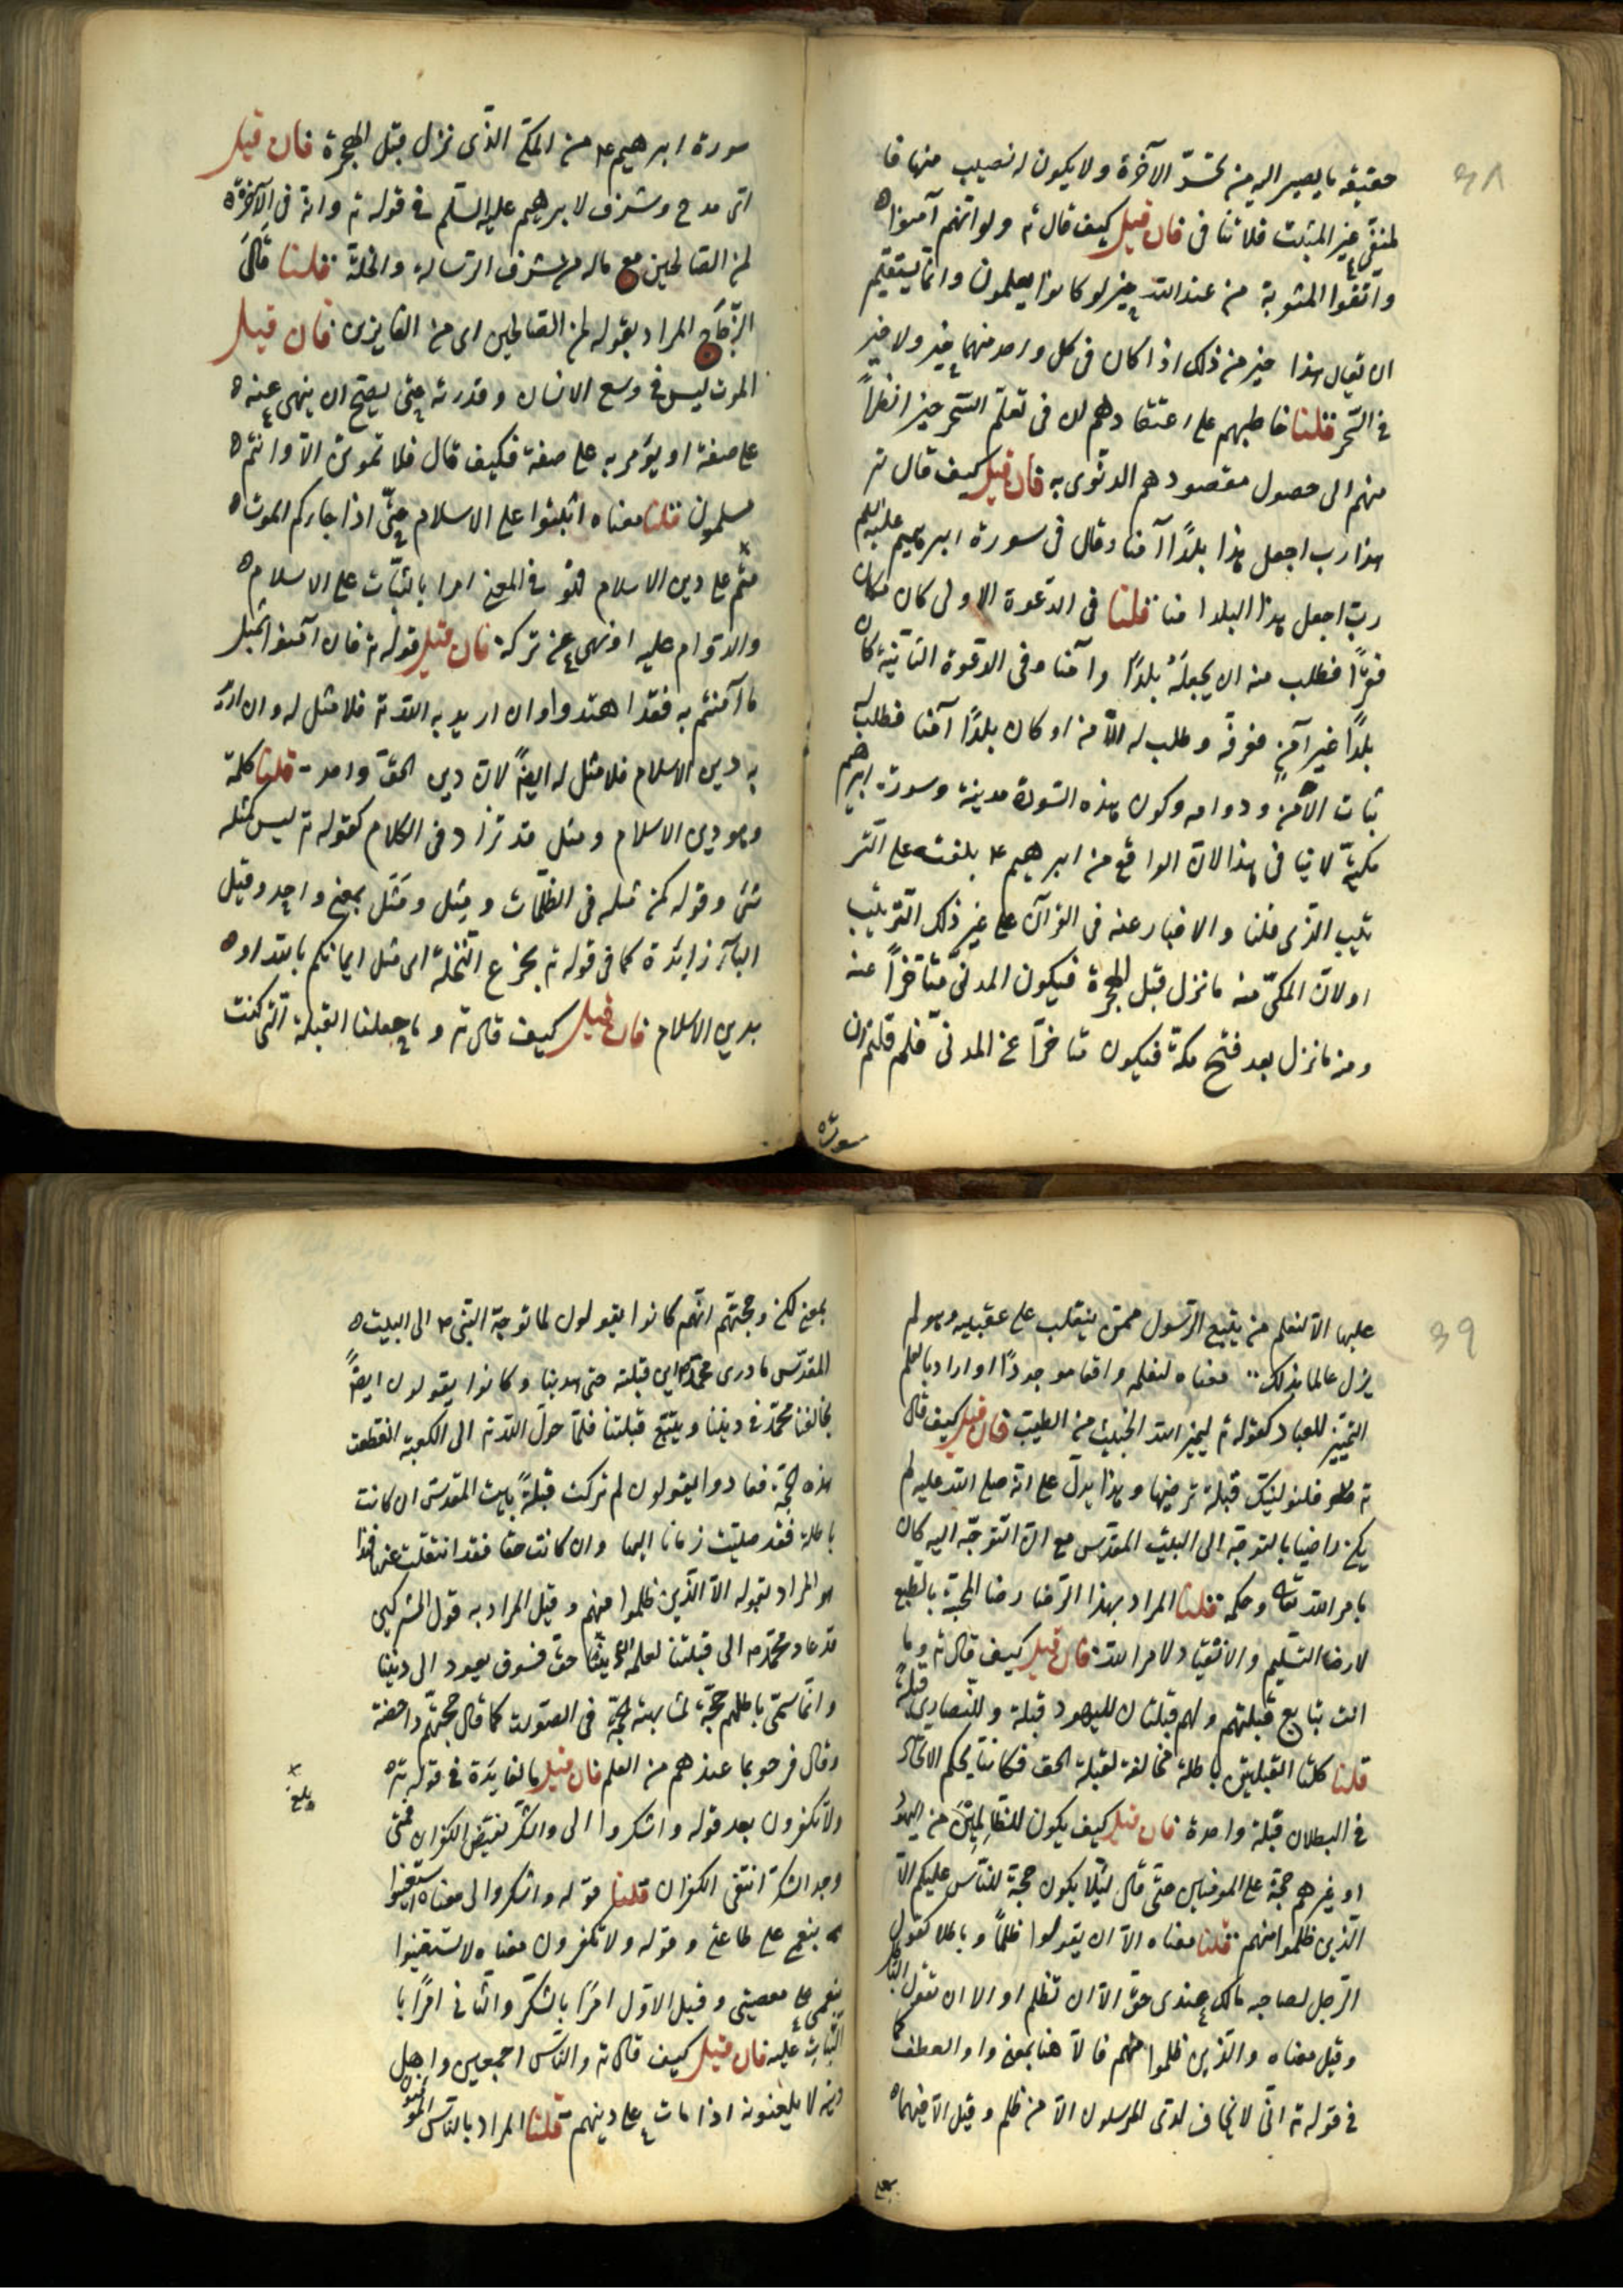 ٣٨
حقيقة ما يصير اليه من تحسر الآخرة ولا يكون له نصيب منها فا
لمنفى غير المثبت فلا تنا فى فان قيل كيف قال تع ولو انهم آمنوا
واتقوا لمثوبة من عند الله خير لو كانوا يعلمون وانما يستقيم
ان يقال هذا خير من ذلك اذا كان فى كل واحد منهما خير ولا خير
فى السحر قلنا خاطبهم على اعتقادهم ان فى تعلم السحر خيرا نظرا
منهم الى حصول مقصودهم الدنيوى به فان قيل كيف قال تع
هنا رب اجعل هذا بلدا آمنا وقال فى سورة ابرهيم عليه السلم
رب اجعل هذا البلد امنا قلنا فى الدعوة الاولى كان مكان
قفرا فطلب منه ان يجعله بلدا وآمنا وفى الدعوة الثانية كان
بلدا غير آمن فعرفه وطلب له الامن او كان بلدا آمنا فطلب له
ثبات الامن ودوامه وكون هذه السورة مدينة وسورة ابرهيم
مكية لا ينا فى هذا لان الواقع من ابرهيم ع بلغته على التر
تيب الذى قلنا والاخبار عنه فى القرآن على غير ذلك الترتيب
اولان المكى منه ما نزل قبل الهجرة فيكون المدنى متأخرا عنه
ومنه ما نزل بعد فتح مكة فيكون متاخرا عن المدنى فلم قلتم ان
سورة
سورة ابرهيم ع من المكى الذى نزل قبل الهجرة فان قيل
اى مدح وشرف لابرهيم عليه السلم فى قوله تع وانه فى الآخرة
لمن الصالحين مع ماله من شرف الرسالة والخلة قلنا قال
الزجاج المراد بقوله لمن الصالحين اى من الفايزين فان قيل
الموت ليس فى وسع الانسان وقدرته حتى يصح ان ينهى عنه
على صفة او يؤمر به على صفة فكيف قال فلا تموتن الا وانتم
مسلمون قلنا معناه اثبتوا على الاسلام حتى اذا جاءكم الموت
متم على دين الاسلام فهو فى المعنى امرا بالثبات على الاسلام
والدوام عليه او نهى عن تركه فان قيل قوله تع فان آمنوا بمثل
ما آمنتم به فقد اهتدوا وان اريد به الله تع فلا مثل له وان اريد
به دين الاسلام فلا مثل له ايضا لان دين الحق واحد قلنا كلمة
وهو دين الاسلام ومثل قد تزاد فى الكلام كقوله تع ليس كمثله
شئ وقوله كمن مثله فى الظلمات ومثل ومثل بمعنى واحد وقيل
الباء زايدة كما فى قوله تع بجزع النخلة اى مثل ايمانكم بالله او
بدين الاسلام فان قيل كيف قال تع وما جعلنا القبلة التى كنت
٣٩
عليها الا لنعلم من يتبع الرسول ممن ينقلب على عقبيه وهو لم
يزل عالما بذلك معناه لنعلمه واقعا موجودا او اراد بالعلم
التمييز للعباد كقوله تع ليميز الله الخبيث من الطيب فان قيل كيف قال
تع فلنولينك قبلة ترضيها وهذا يدل على انه صلى الله عليه لم
يكن راضيا بالتوجه الى البيت المقدس مع ان التوجه اليه كان
بامر الله تعالى وحكمه قلنا المراد بهذا الرضا رضا المحبة بالطبع
لا رضا التسليم والانقياد لامر الله فان قيل كيف قال تع وما
انت بتابع قبلتهم ولهم قبلتان لليهود قبلة وللنصارى قبلة
قلنا كلتا القبلتين باطلة مخالفة لقبلة الحق فكانتا بحكم الاتحاد
فى البطلان قبلة واحدة فان قيل كيف يكون للظالمين من اليهود
او غيرهم حجة على المومنين حتى قال لئلا يكون حجة للناس عليكم الا
الذين ظلموا منهم قلنا معناه الا ان يقولوا ظلما وباطلا كقول
الرجل لصاحبه مالك عندى حق الا ان تظلم او الا ان تقول الباطل
وقيل معناه والذين ظلموا منهم فالا هنا بمعنى واو العطف كما
فى قوله تع انى لا يخاف لدى المرسلون الا من ظلم وقيل الا فيهما
بمعنى
بمعنى لكن وحجتهم انهم كانوا يقولون لما توجه النبى ع الى البيت
المقدس ما درى محمد اين قبلته حتى هديناه وكانوا يقولون ايضا
يخالفنا محمد فى ديننا ويتبع قبلتنا فلما حول الله تع الى الكعبة انقطعت
هذه الحجة فعادوا يقولون لم تركت قبلة بيت المقدس ان كانت
باطلة فقد صليت زمانا اليها وان كانت حقا فقد انتقلت عنها فهذا
هو المراد بقوله الا الذين ظلموا منهم وقيل المراد به قول المشركين
قد عاد محمد ع الى قبلتنا لعلمه ان ديننا حق فسوف يعود الى ديننا
وانما سمى باطلهم حجة لمشابهته الحجة فى الصورة كما قال حجتهم داحضة
وقال فرحوا بما عندهم من العلم فان قيل ما الفايدة فى قوله تع
ولا تكفرون بعد قوله واشكروا الى والشكر نقيض الكفران فمتى
وجد الشكر انتفى الكفران قلنا قوله واشكروا لى معناه استعينوا
بنعمى على طاعتى وقوله ولا تكفرون معناه لا تستعينوا
بنعمى على معصيتى وقيل الاول امرا بالشكر والثانى امرا با
لثبات عليه فان قيل كيف قال تع والناس اجمعين واهل
دينه لا يلعنونه اذا مات على دينهم قلنا المراد بالناس المومنون
بلغ